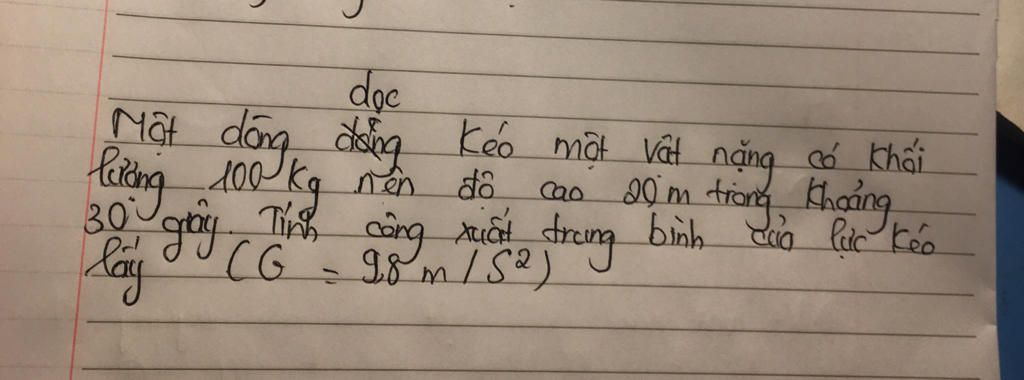 dọc
Một dòng động kéo một vật nặng có khối
lượng 100 kg nên độ cao 20 m trong khoảng
30 giây. Tính công xuất trung bình của lực kéo
lấy (G = 9,8 m/s²)